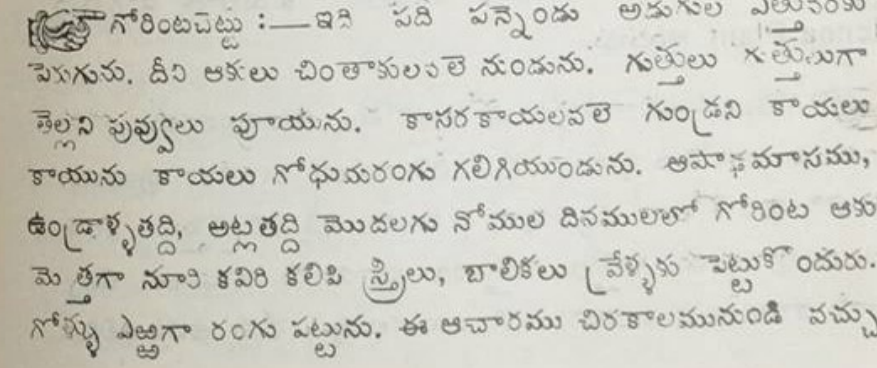 గోరింటచెట్టు :— ఇది పది పన్నెండు అడుగుల ఎత్తువరకు
పెరుగును. దీని ఆకులు చింతాకులవలె నుండును. గుత్తులు గుత్తులుగా
తెల్లని పువ్వులు పూయును. కాసరకాయలవలె గుండ్రని కాయలు
కాయును కాయలు గోధుమరంగు గలిగియుండును. ఆషాఢమాసము,
ఉండ్రాళ్ళతద్ది, అట్లతద్ది మొదలగు నోముల దినములలో గోరింట ఆకు
మెత్తగా నూరి కవిరి కలిపి స్త్రీలు, బాలికలు వ్రేళ్ళకు పెట్టుకొందురు.
గోళ్ళు ఎఱ్ఱగా రంగు పట్టును. ఈ ఆచారము చిరకాలమునుండి వచ్చు